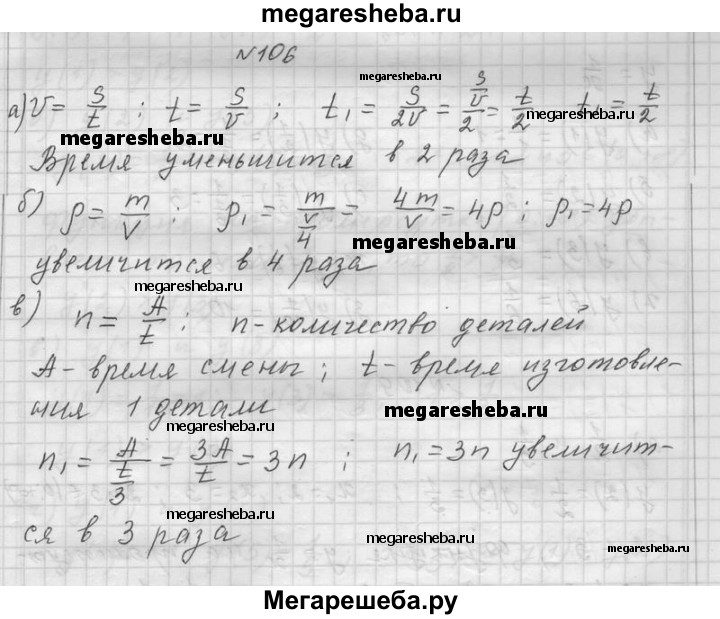 megaresheba.ru
№106
megaresheba.ru
а) v = s/t ; t = s/v ; t₁ = s/2v = (s/v)/2 = t/2 t₁ = t/2
megaresheba.ru
megaresheba.ru
Время уменьшится в 2 раза
б) ρ = m/v ; ρ₁ = m/(v/4) = 4m/v = 4ρ ; ρ₁ = 4ρ
megaresheba.ru
увеличится в 4 раза
megaresheba.ru
в) n = A/t ; n - количество деталей
A - время смены ; t - время изготовле-
ния 1 детали
megaresheba.ru
n₁ = A/(t/3) = 3A/t = 3n ; n₁ = 3n увеличит-
megaresheba.ru
ся в 3 раза
megaresheba.ru
megaresheba.ru
Мегарешеба.ру